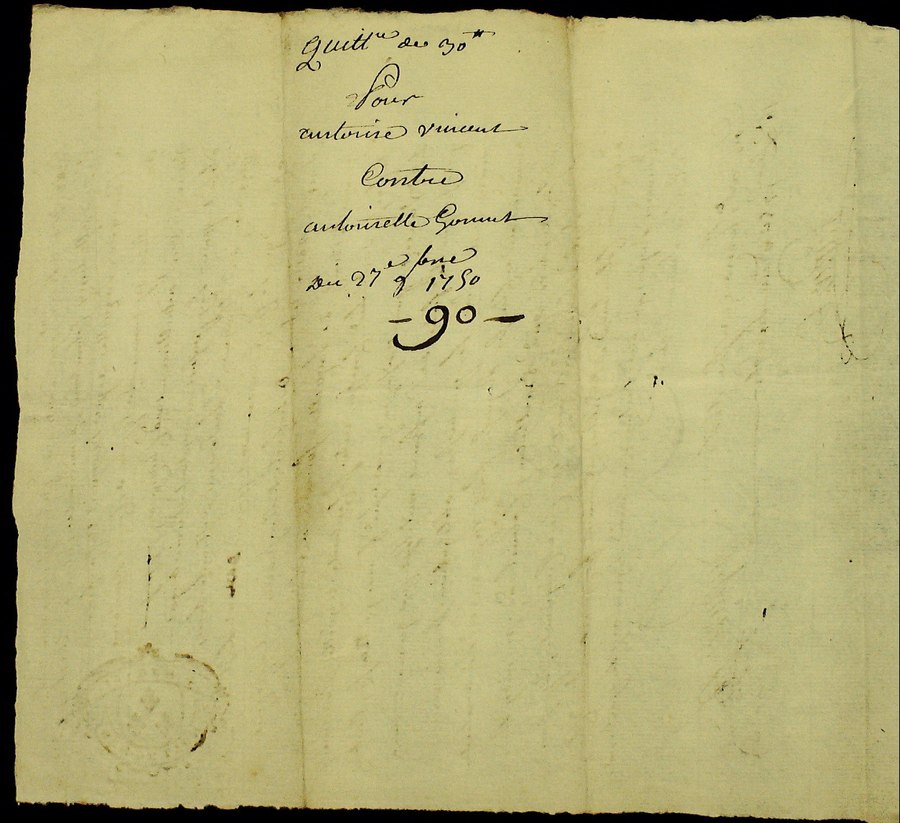 Quitt.ce de 30tt
Pour
antoine vincent
Contre
antoinette Gonnet
Du 27e 1750
-90-